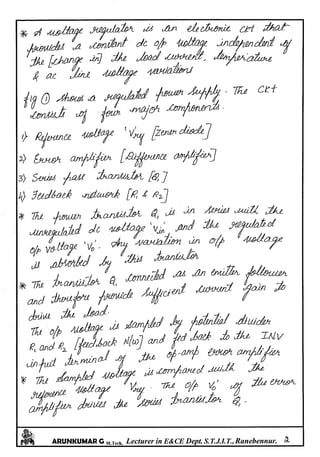 * A voltage regulator is an electronic ckt that
provides a constant dc o/p voltage independent of
the [change in] the load current, temperature
& ac line voltage variations
fig ① shows a regulated power supply. The ckt
consists of four major components.
1) Reference voltage 'Vref' [zener diode]
2) Error amplifier [Difference amplifier]
3) Series pass transistor [Q₁]
4) Feedback network [R₁ & R₂]
* The power transistor Q₁ is in series with the
unregulated dc voltage 'Vin' and the regulated
o/p voltage 'Vo'. Any variation in o/p voltage
is absorbed by this transistor
* The transistor Q₁ connected as an emitter follower
and therefore provide sufficient current gain to
drive the load.
The o/p voltage is sampled by potential divider
R₁ and R₂ [feedback N/w] and fed back to the INV
input terminal of the op-amp error amplifier
* The sampled voltage is compared with the
reference voltage 'Vref'. The o/p Vo' of the error
amplifier drives the series transistor Q₁.
ARUNKUMAR G M.Tech, Lecturer in E&CE Dept. S.T.J.I.T., Ranebennur. 2